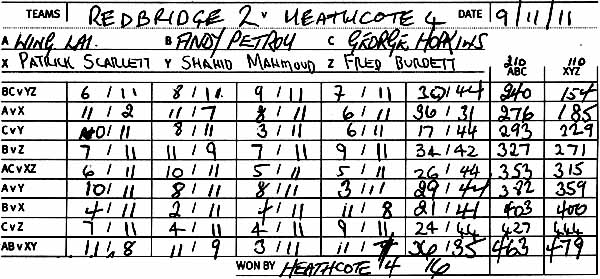 TEAMS REDBRIDGE 2 v HEATHCOTE 4 DATE 9/11/11
A WING LAI. B ANDY PETROU C GEORGE HOPKINS 210 110
X PATRICK SCARLETT Y SHAHID MAHMOUD Z FRED BURDETT ABC XYZ
BCvYZ 6/11 8/11 9/11 7/11 30/44 240 154
AvX 11/2 11/7 8/11 6/11 36/31 276 185
CvY 0/11 8/11 3/11 6/11 17/44 293 229
BvZ 7/11 11/9 7/11 9/11 34/42 327 271
ACvXZ 6/11 10/11 5/11 5/11 26/44 353 315
AvY 10/11 8/11 8/11 3/11 29/44 382 359
BvX 4/11 2/11 4/11 11/8 21/41 403 400
CvZ 7/11 4/11 4/11 9/11 24/44 427 444
ABvXY 11/8 11/9 3/11 11/7 36/35 463 479
WON BY HEATHCOTE 4